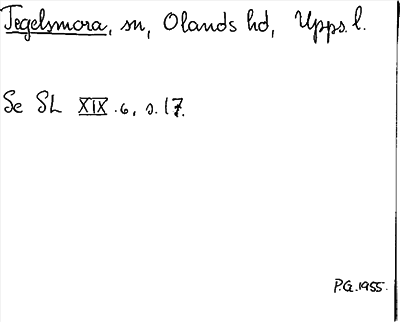 Tegelsmora, sn, Olands hd, Upps. l.
Se SL XIX.6, s. 17.
P.G. 1955.